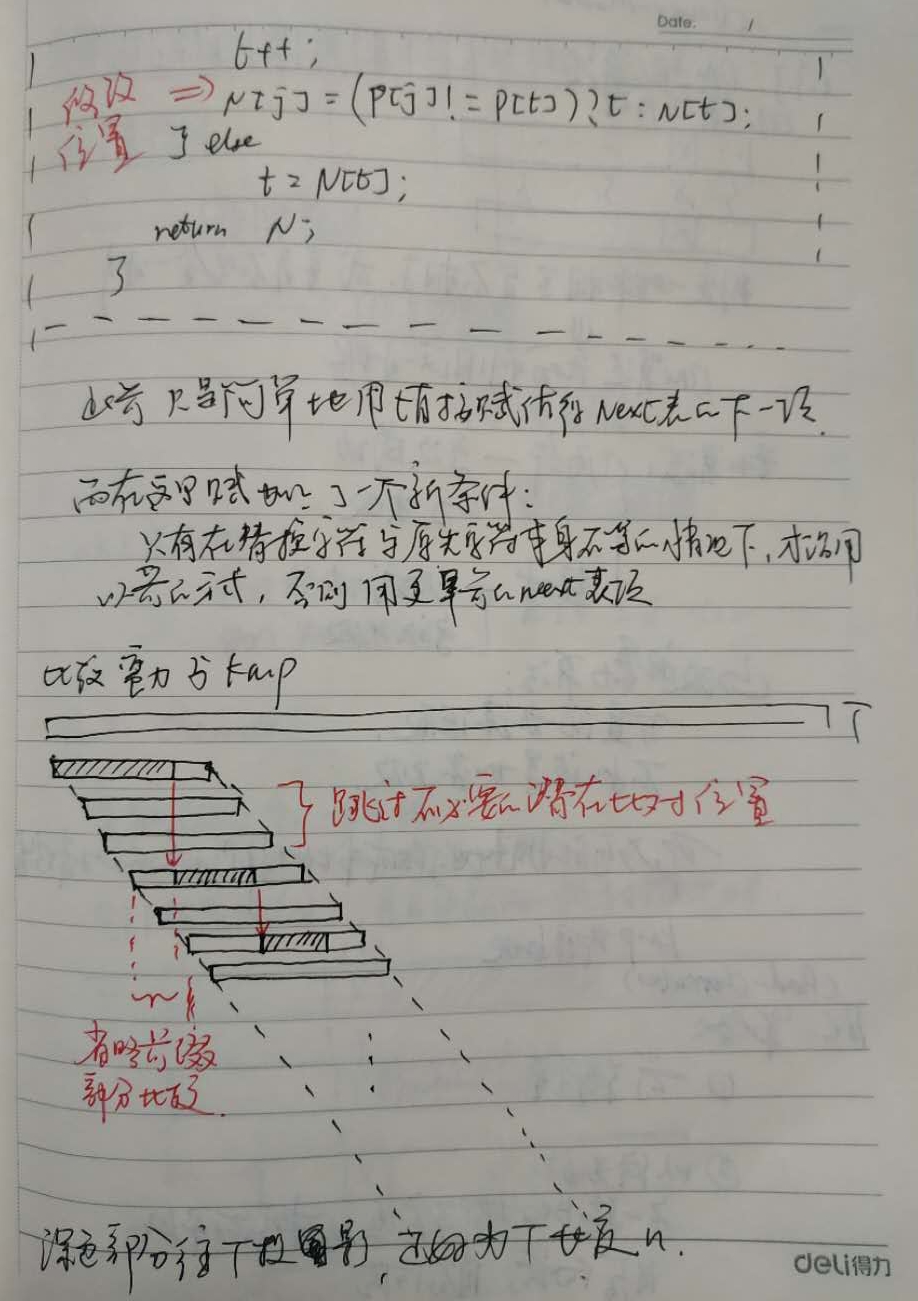 Date. /
t++;
修改 => N[j] = (P[j] != P[t]) ? t : N[t];
位置 } else
t = N[t];
return N;
}
此前 只是简单地用t直接赋值给Next表的下一项.
而在这里 了一个新条件:
只有在替换字符与原失字符本身不等的情况下, 才沿用
以前的方式, 否则用更靠前的next表项
比较 蛮力 与 kmp
T
跳过不必要的潜在比对位置
省略前缀
部分比较.
深色部分往下投影, 为T长度n.
deli得力